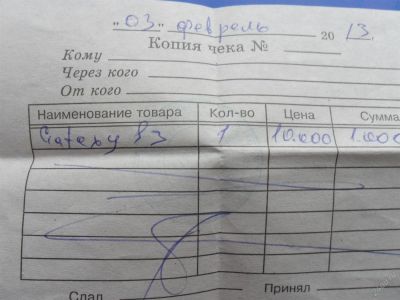 "03" февраль 2013
Копия чека №
Кому
Через кого
От кого
Наименование товара Кол-во Цена Сумма
Galaxy S3 1 10.000 1.000
Сдал Принял